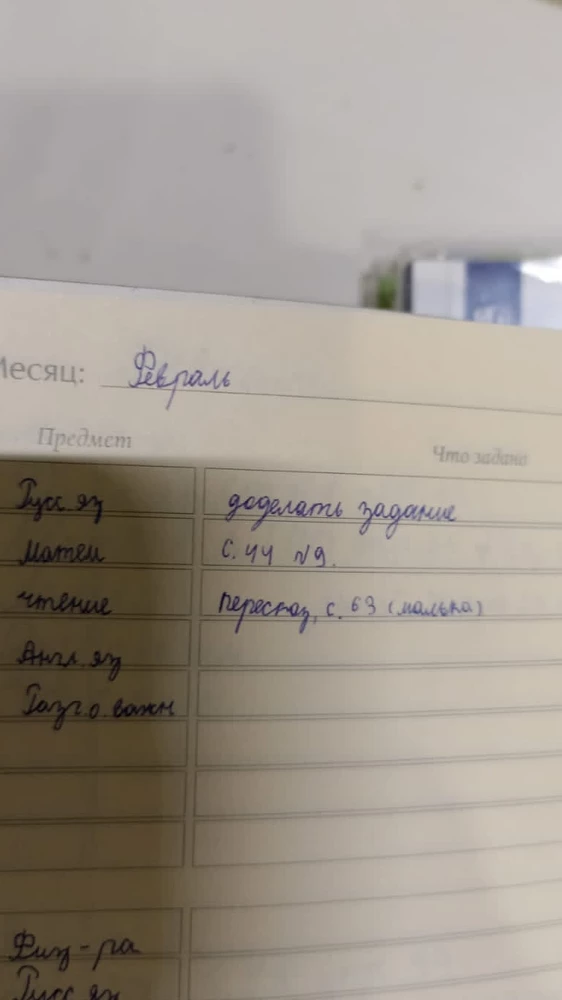 Месяц: Февраль
Предмет Что задано
Русс. яз доделать задание
матем с. 44 №9.
чтение пересказ, с. 63 (малька)
Англ. яз
Разг. о. важн
Физ-ра
Русс. яз